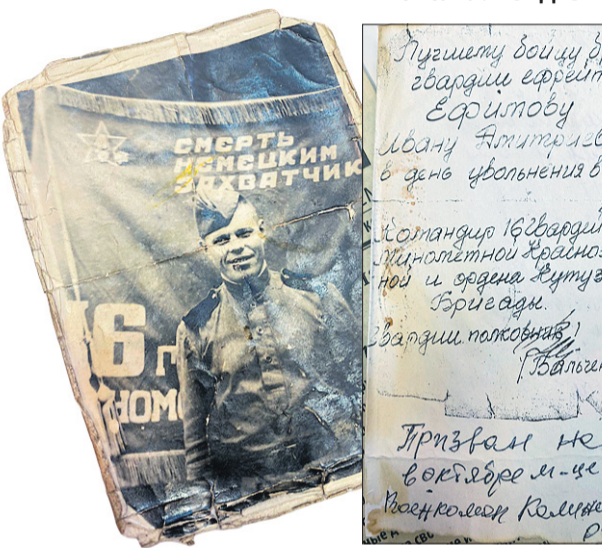 СМЕРТЬ
НЕМЕЦКИМ
ЗАХВАТЧИК
16 Г
НОМ
Лучшему бойцу б
гвардии ефрейт
Ефимову
Ивану Дмитриев
в день увольнения в
Командир 16 гвардей
минометной Красноз
ной и ордена Кутуз
Бригады.
Гвардии полковник
Вальчен
Призван на
в октябре м-це
Военкомом Калин